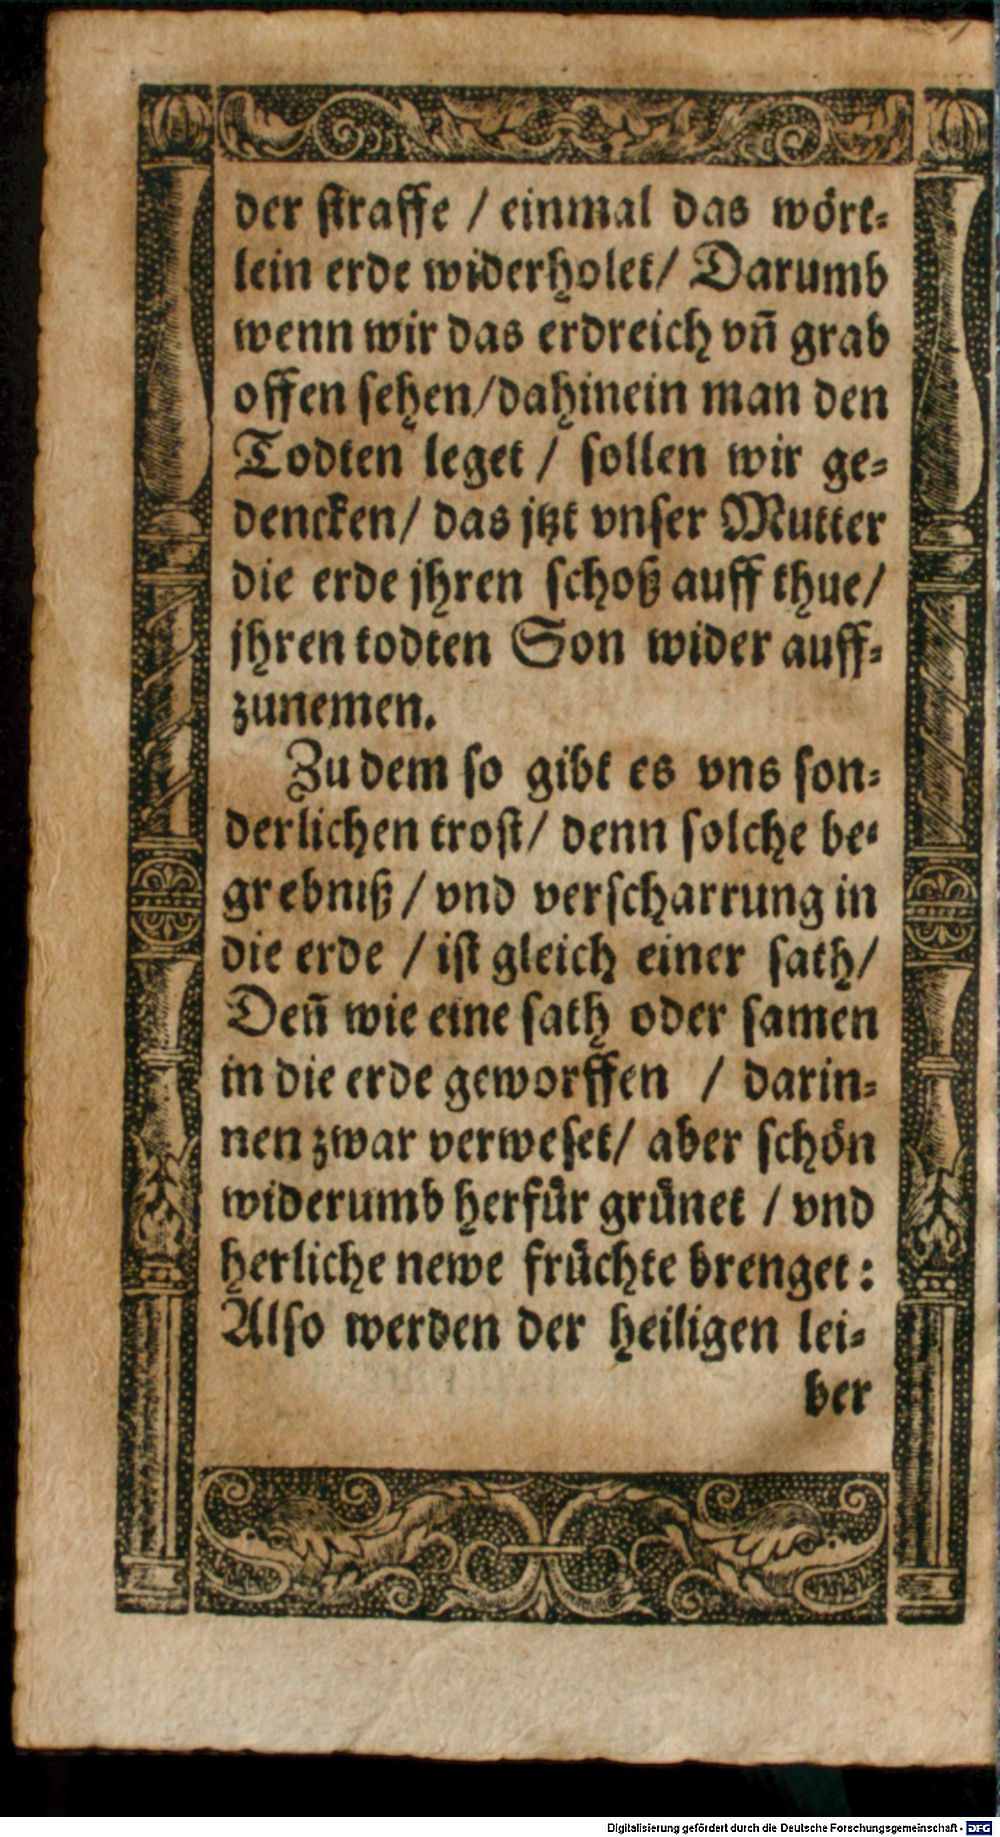 der straffe / einmal das wört-
lein erde widerholet/ Darumb
wenn wir das erdreich vñ grab
offen sehen/dahinein man den
Todten leget / sollen wir ge-
dencken/ das jtzt vnser Mutter
die erde jhren schoß auff thue/
jhren todten Son wider auff-
zunemen.
Zu dem so gibt es vns son-
derlichen trost/ denn solche be-
grebniß / vnd verscharrung in
die erde / ist gleich einer sath/
Deñ wie eine sath oder samen
in die erde geworffen / darin-
nen zwar verweset/ aber schön
widerumb herfür grünet / vnd
herliche newe früchte brenget:
Also werden der heiligen lei-
ber
Digitalisierung gefördert durch die Deutsche Forschungsgemeinschaft - DFG